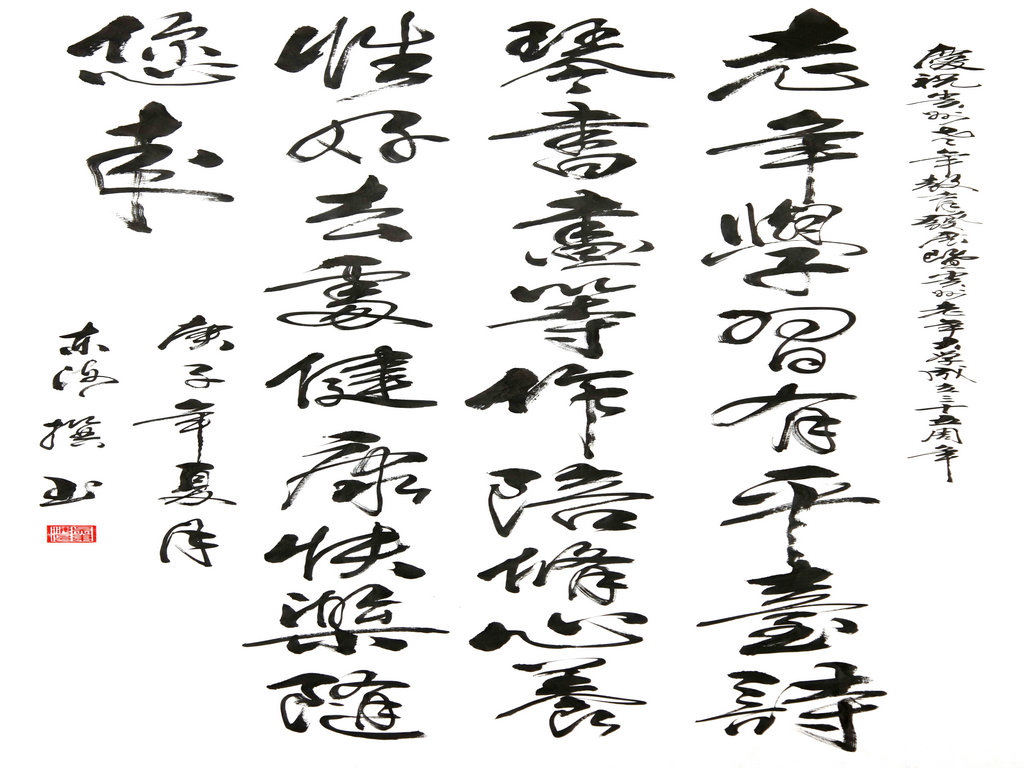 慶祝貴州老年教育發展暨貴州老年大学成立三十五周年
老年學習有平臺詩
琴書畫等作陪修心養
性好去處健康快樂隨
您來
庚子年夏月
撰书